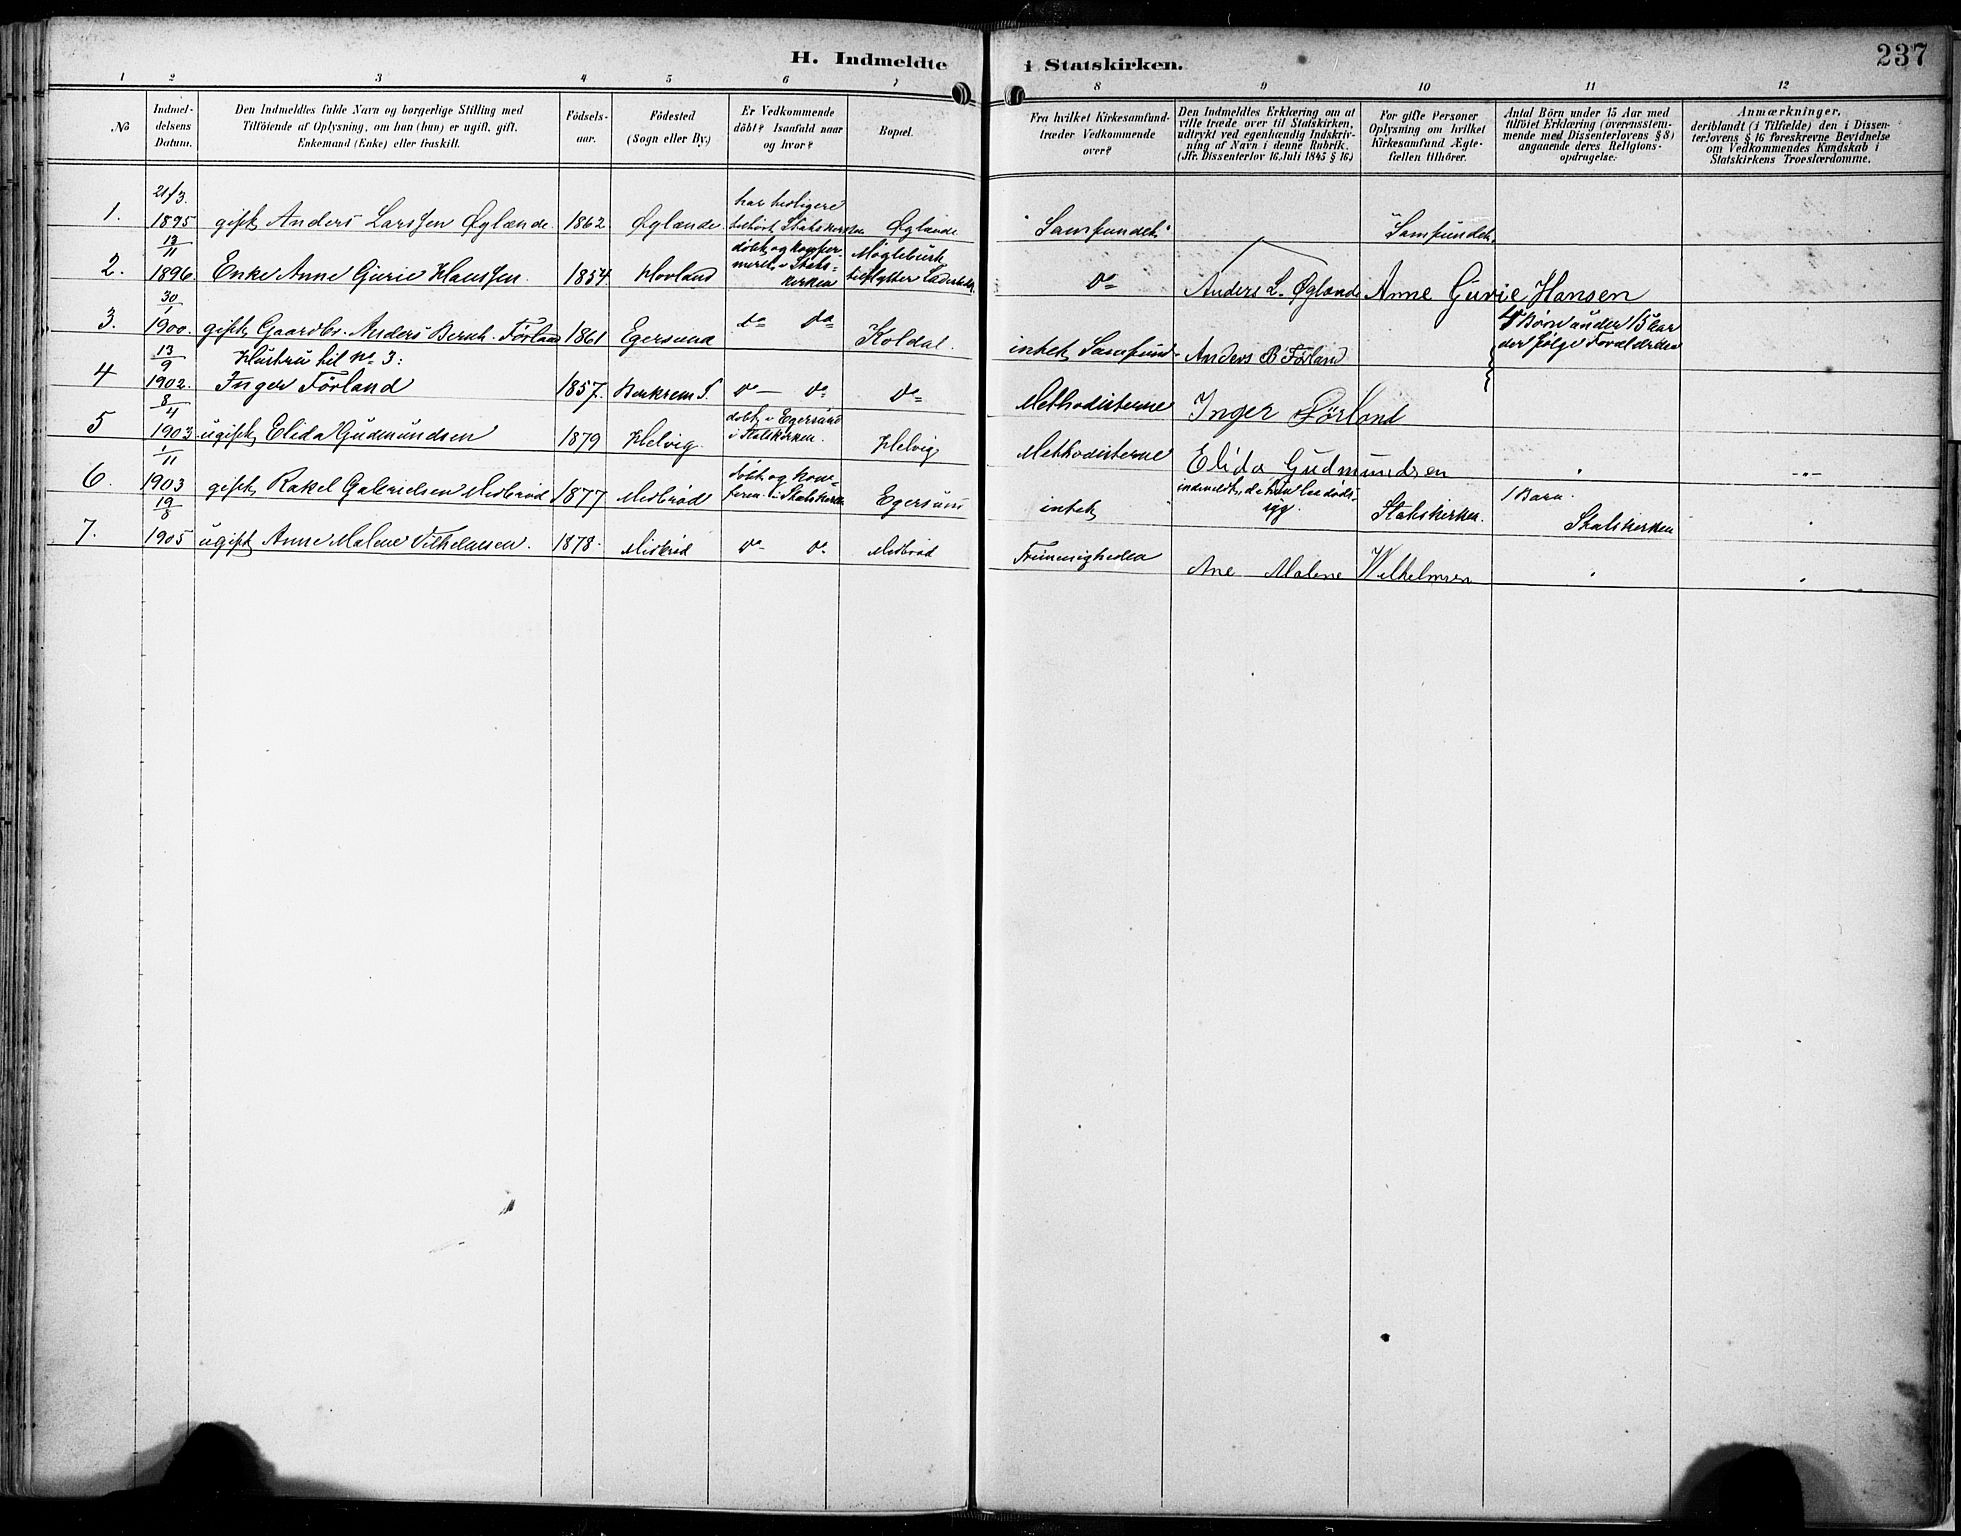 H. Indmeldte i Statskirken.
237
1 2 3 4 5 6 7 8 9 10 11 12
No
Indmel-
delsens
Datum.
Den Indmeldtes fulde Navn og borgerlige Stilling med
Tilföiende af Oplysning, om han (hun) er ugift, gift,
Enkemand (Enke) eller fraskilt.
Födsels-
aar.
Födested
(Sogn eller By.)
Er Vedkommende
döbt? Isaafald naar
og hvor?
Bopæl.
Fra hvilket Kirkesamfund
træder Vedkommende
over?
Den Indmeldtes Erklæring om at
ville træde over til Statskirken,
udtrykt ved egenhændig Indskriv-
ning af Navn i denne Rubrik.
(Jfr. Dissenterlov 16 Juli 1845 § 16)
For gifte Personer
Oplysning om hvilket
Kirkesamfund Ægte-
fællen tilhörer.
Antal Börn under 15 Aar med
tilföiet Erklæring (overensstem-
mende med Dissenterlovens § 8)
angaaende deres Religions-
opdragelse.
Anmærkninger,
deriblandt (i Tilfælde) den i Dissen-
terlovens § 16 foreskrevne Bevidnelse
om Vedkommendes Kundskab i
Statskirkens Troeslærdomme.
1. 21/3 1895 gift Anders Larssen Øglænde 1862 Øglænde. har tidligere
tilhört Statskirken Øglænde "Samfundet" "Samfundet"
2. 13/11 1896 Enke Anne Gurie Hanssen. 1854 Hovland döbt og konfir-
meret i Stats-
kirken
do Anders L. Øglænde Anne Gurie Hansen
3. 30/1 1900. gift Gaardbr. Anders Bernh. Førland 1861 Egersund do do Koldal. intet Samfund Anders B Førland 4 Børn under 15 aar
der følge Forældrene
4 13/9 1902. Hustru til No 3:
Inger Førland 1857. do — do do Methodisterne Inger Førland
5 8/4 1903 ugift Elida Gudmundsen 1879 Helvig. döbt i Egersund
i Statskirken. Helvig Methodisterne Elida Gudmundsen -"-
6. 1/11 1903 gift Rakel Gabrielsen Midbrød 1877 Midbrød döbt og kon-
firm. i Statskirken Egersund intet Statskirken. 1 Barn.
Statskirken
7. 19/8 1905 ugift Anne Malene Vilhelmsen. 1878. Midbrød do do Midbrød Ane Malene Wilhelmsen